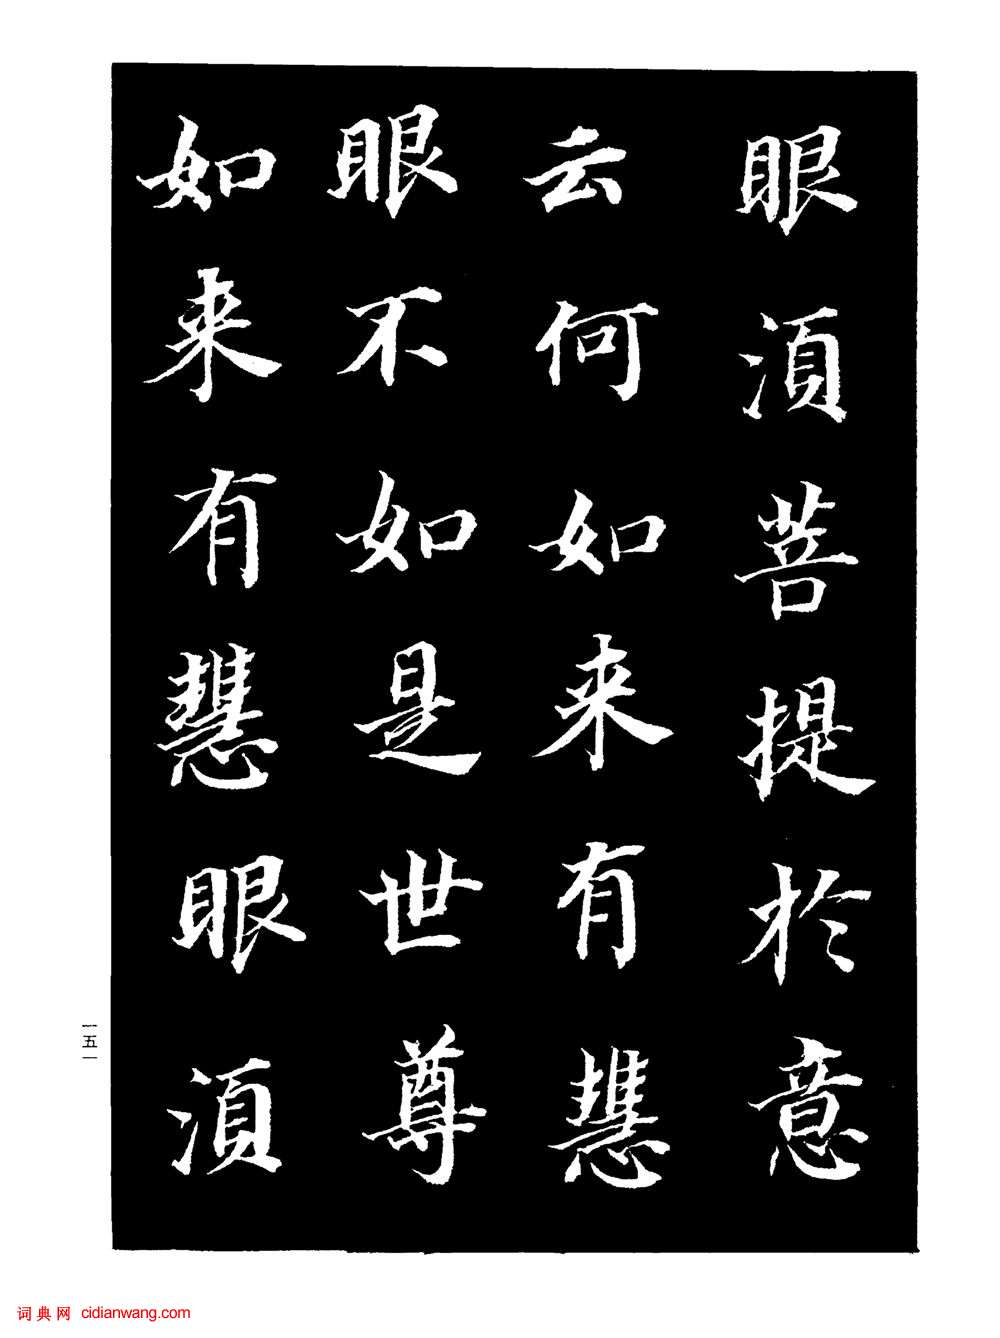 眼湏菩提於意
云何如来有慧
眼不如是世尊
如来有慧眼湏
一五一
词典网 cidianwang.com